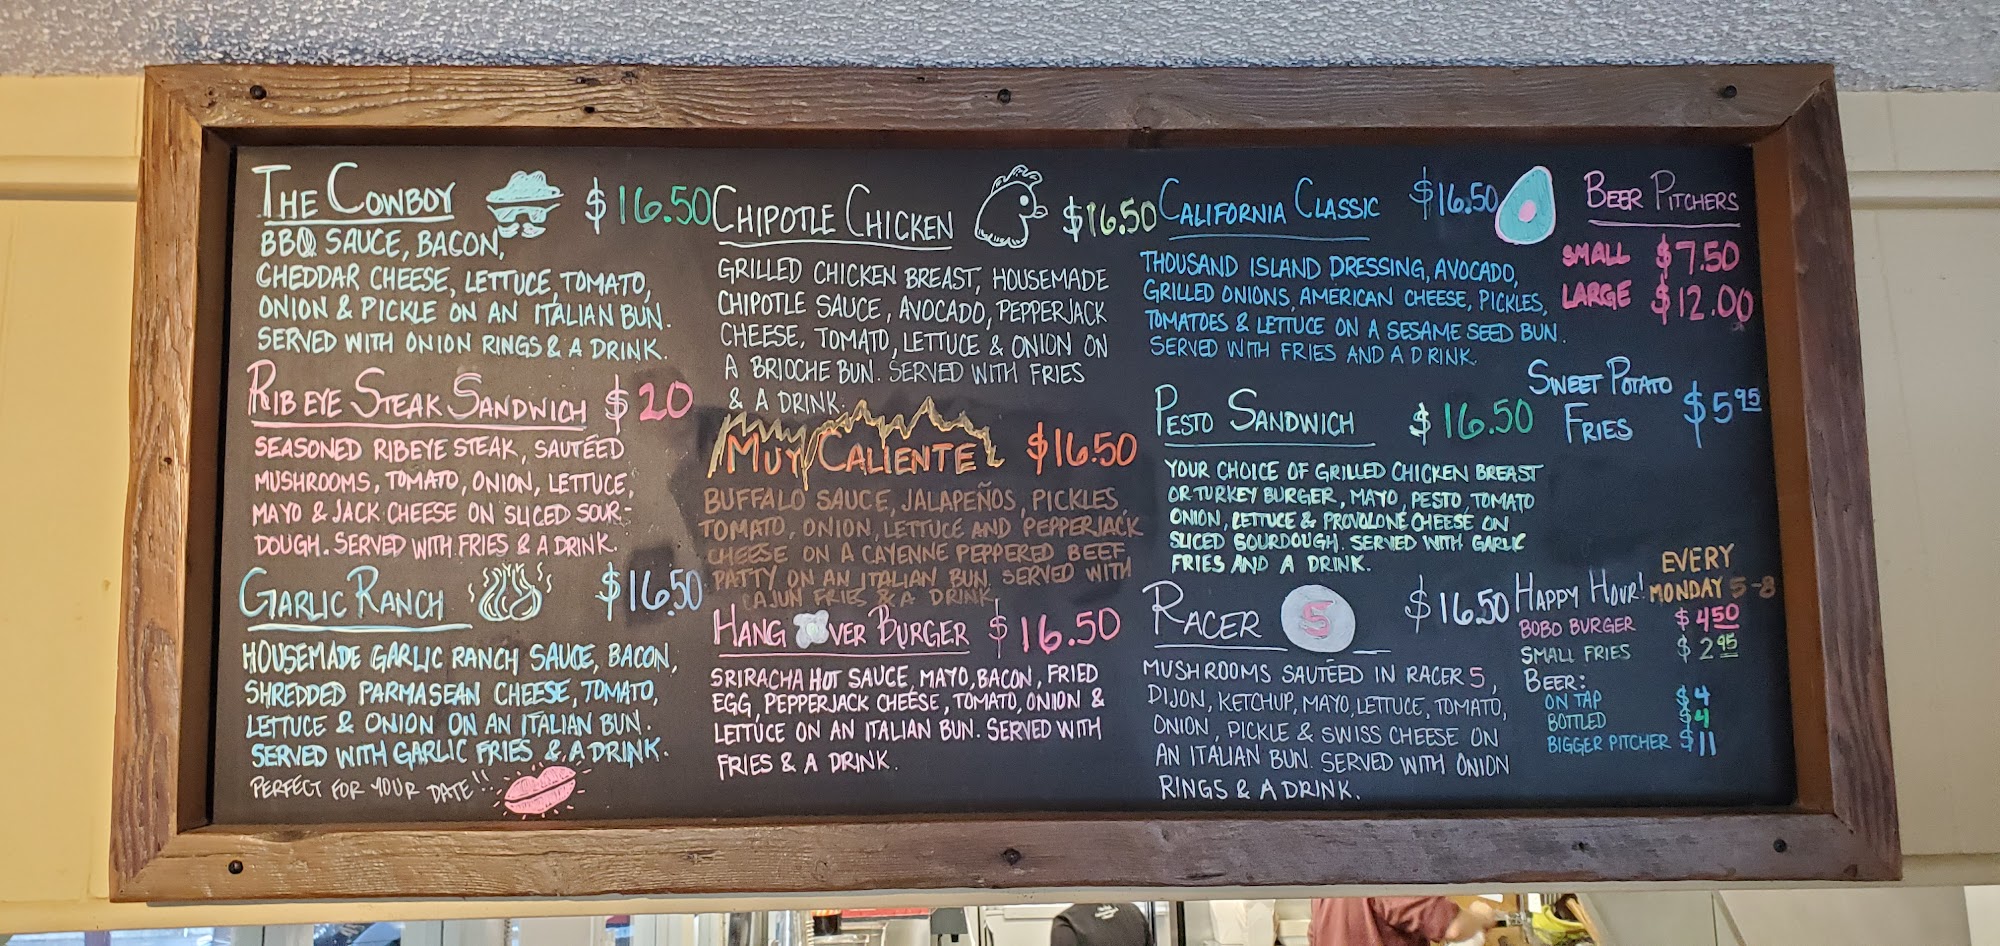 THE COWBOY $16.50
BBQ SAUCE, BACON,
CHEDDAR CHEESE, LETTUCE, TOMATO,
ONION & PICKLE ON AN ITALIAN BUN.
SERVED WITH ONION RINGS & A DRINK.
RIB EYE STEAK SANDWICH $20
SEASONED RIBEYE STEAK, SAUTÉED
MUSHROOMS, TOMATO, ONION, LETTUCE,
MAYO & JACK CHEESE ON SLICED SOUR-
DOUGH. SERVED WITH FRIES & A DRINK.
GARLIC RANCH $16.50
HOUSEMADE GARLIC RANCH SAUCE, BACON,
SHREDDED PARMASEAN CHEESE, TOMATO,
LETTUCE & ONION ON AN ITALIAN BUN.
SERVED WITH GARLIC FRIES & A DRINK.
PERFECT FOR YOUR DATE!!
CHIPOTLE CHICKEN $16.50
GRILLED CHICKEN BREAST, HOUSEMADE
CHIPOTLE SAUCE, AVOCADO, PEPPERJACK
CHEESE, TOMATO, LETTUCE & ONION ON
A BRIOCHE BUN. SERVED WITH FRIES
& A DRINK.
MUY CALIENTE $16.50
BUFFALO SAUCE, JALAPEÑOS, PICKLES,
TOMATO, ONION, LETTUCE AND PEPPERJACK
CHEESE ON A CAYENNE PEPPERED BEEF
PATTY ON AN ITALIAN BUN. SERVED WITH
CAJUN FRIES & A DRINK.
HANG OVER BURGER $16.50
SRIRACHA HOT SAUCE, MAYO, BACON, FRIED
EGG, PEPPERJACK CHEESE, TOMATO, ONION &
LETTUCE ON AN ITALIAN BUN. SERVED WITH
FRIES & A DRINK.
CALIFORNIA CLASSIC $16.50
THOUSAND ISLAND DRESSING, AVOCADO,
GRILLED ONIONS, AMERICAN CHEESE, PICKLES,
TOMATOES & LETTUCE ON A SESAME SEED BUN.
SERVED WITH FRIES AND A DRINK.
PESTO SANDWICH $16.50
YOUR CHOICE OF GRILLED CHICKEN BREAST
OR TURKEY BURGER, MAYO, PESTO, TOMATO
ONION, LETTUCE & PROVOLONE CHEESE ON
SLICED SOURDOUGH. SERVED WITH GARLIC
FRIES AND A DRINK.
RACER 5 $16.50
MUSHROOMS SAUTÉED IN RACER 5,
DIJON, KETCHUP, MAYO, LETTUCE, TOMATO,
ONION, PICKLE & SWISS CHEESE ON
AN ITALIAN BUN. SERVED WITH ONION
RINGS & A DRINK.
BEER PITCHERS
SMALL $7.50
LARGE $12.00
SWEET POTATO
FRIES $5.95
HAPPY HOUR! EVERY
MONDAY 5-8
BOBO BURGER $4.50
SMALL FRIES $2.95
BEER:
ON TAP $4
BOTTLED $4
BIGGER PITCHER $11